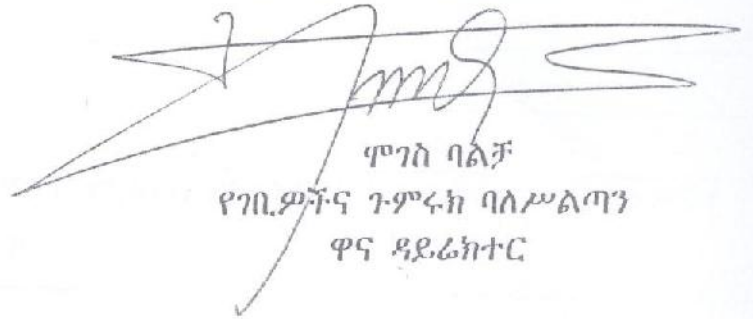 ሞገስ ባልቻ
የገቢዎችና ጉምሩክ ባለሥልጣን
ዋና ዳይሬክተር